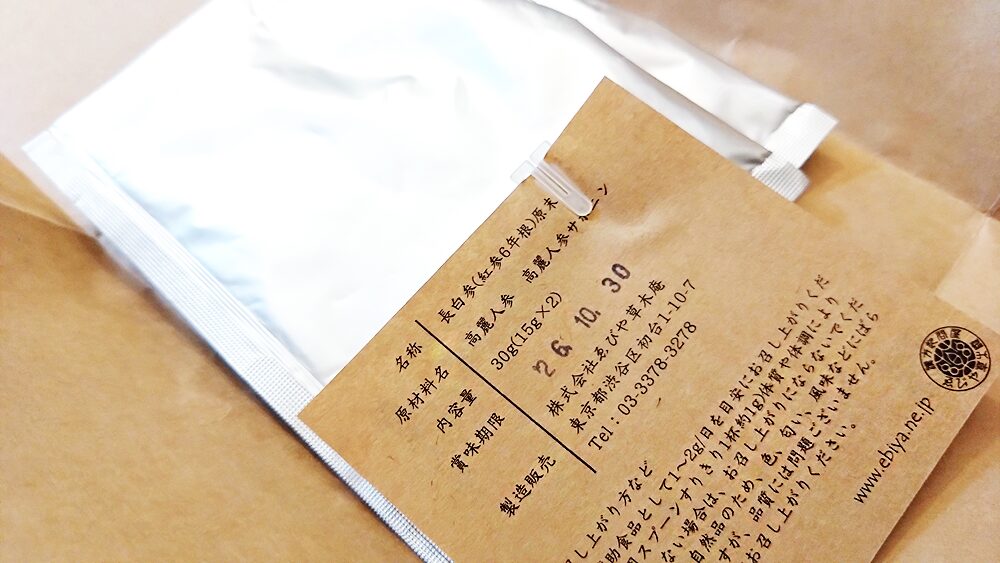 名称 長白参(紅参6年根)原末
原材料名 高麗人参 高麗人参サポニン
内容量 30g(15g×2)
賞味期限 26. 10. 30
製造販売 株式会社ゑびや草木庵
東京都渋谷区初台1-10-7
Tel：03-3378-3278
し上がり方など
助食品として1〜2g/日を目安にお召し上がりくだ
用スプーンすりきり1杯約1g)体質や体調により
ない場合は、お召し上がりにならないでくだ
自然品のため、色、匂い、風味などにばら
すが、品質には問題ございません。
お召し上がりください。
www.ebiya.ne.jp